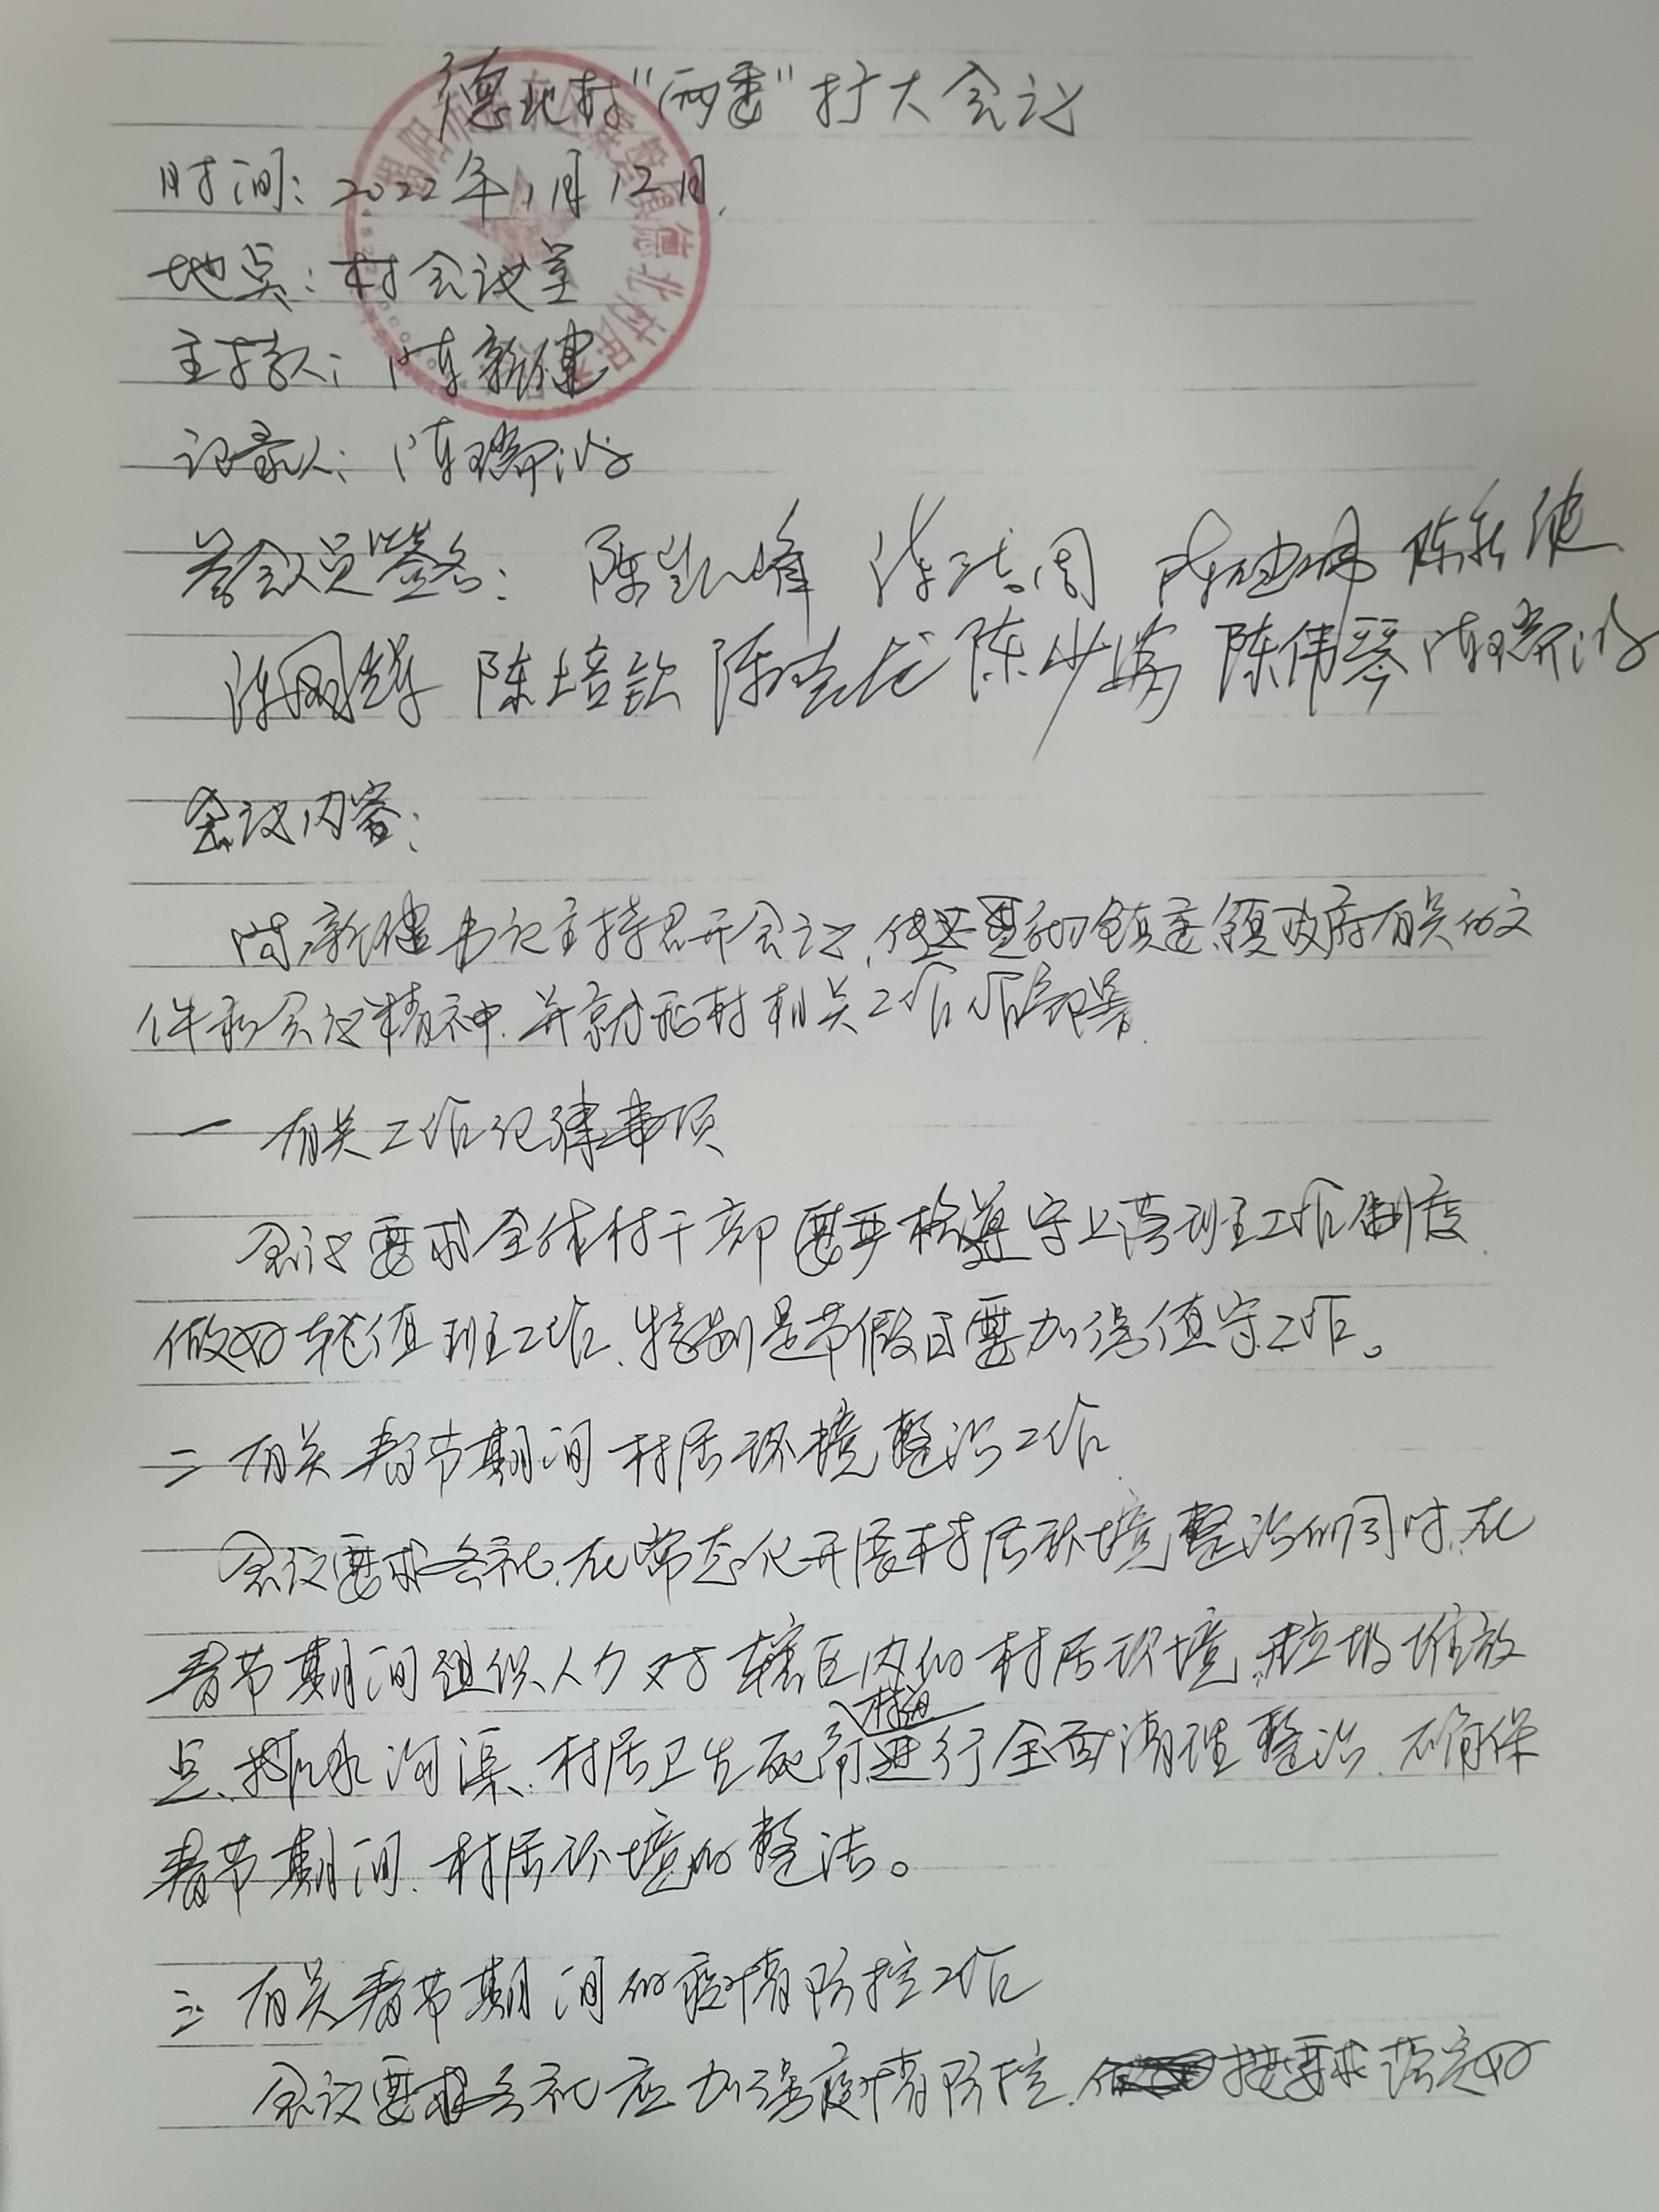 德北村“两委”扩大会议
时间：2022年1月12日
地点：村会议室
主持人：陈新健
记录人：陈瑞
参会人员签名：陈凯峰 陈新健
陈培钦 陈伟琴 陈瑞
会议内容：
陈新健书记主持召开会议，传达 镇政府有关的文
件和会议精神，并就我村相关工作作部署
一 有关工作纪律事项
会议要求全体村干部要严格遵守上落班工作制度，
做好轮值班工作，特别是节假日要加强值守工作。
二 有关春节期间村居环境整治工作
会议要求各社，在常态化开展村居环境整治的同时，在
春节期间组织人力对辖区内的村居环境、垃圾堆放
点、排水沟渠、村居卫生死角进行全面清理整治，确保
春节期间，村居环境的整洁。
三 有关春节期间的疫情防控工作
会议要求各社应加强疫情防控，按要求落实好